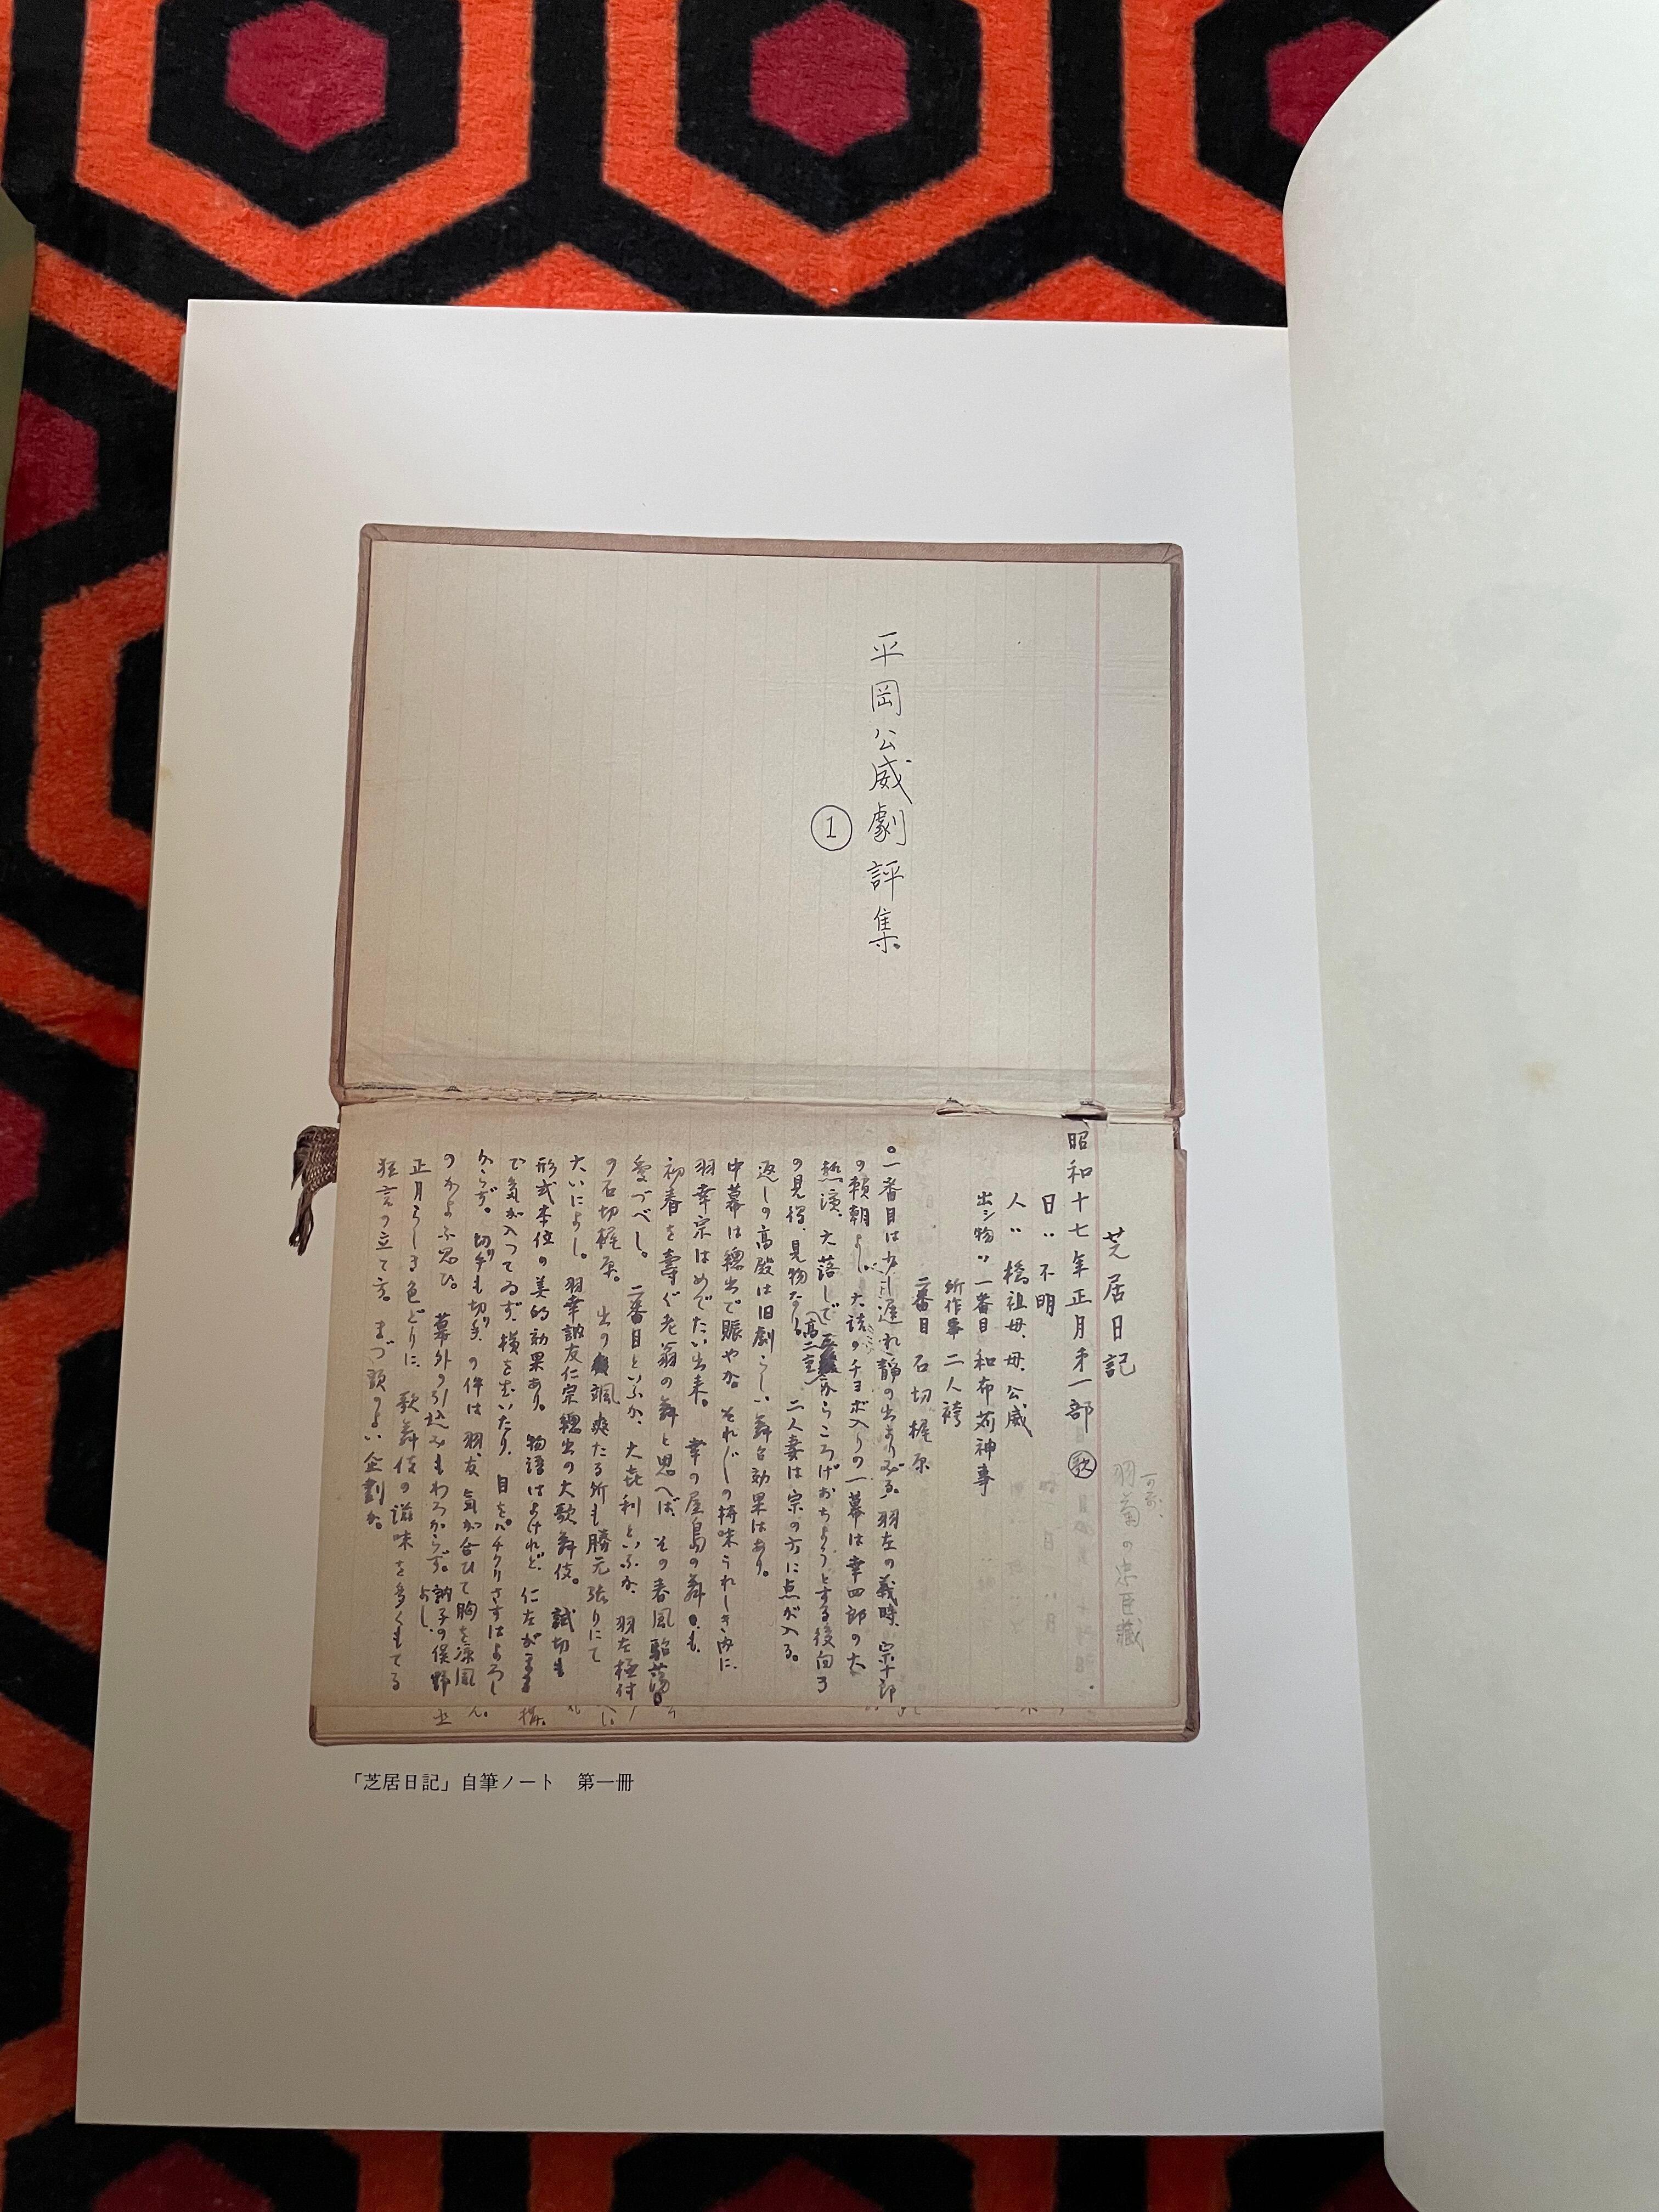 平岡公威劇評集
①
芝居日記
昭和十七年正月第一部 歌
日〃不明
人〃 橋祖母、母、公威
出シ物〃 一番目 和布苅神事
所作事 二人袴
二番目 石切梶原
羽菊の忠臣蔵
○一番目は少し遅れ静の出よりみる。羽左の義時、宗十郎
の頼朝よし。大詰のチョボ入りの一幕は幸四郎の大
熱演、大落しで からころげおちようとする後向き
の見得、見物なる 二人妻は宗の方に点が入る。
返しの高殿は旧劇らしい舞台効果はあり。
中幕は総出で賑やか。それ〴〵の持味うれしき内に、
羽幸宗はめでたい出来。幸の屋島の舞も、
初春を寿ぐ老翁の舞と思へば、その春風駘蕩
愛づべし。二番目といふか、大喜利といふか、羽左極付
の石切梶原。出の颯爽たる所も勝元張りにて
大いによし。羽幸訥友仁宗総出の大歌舞伎。試切も
形式本位の美的効果あり。物語はよけれど、仁左が
で気が入つてゐず、横をむいたり、目をパチクリさすはよろし
からず。切手も切手、の件は羽、友、気が合ひて胸を涼風
のかよふ思ひ。幕外の引込みもわろからず。訥子の俣野よし。
正月らしき色どりに、歌舞伎の滋味を多くもてる
狂言の立て方。まづ頭のよい企劃か。
「芝居日記」自筆ノート 第一冊